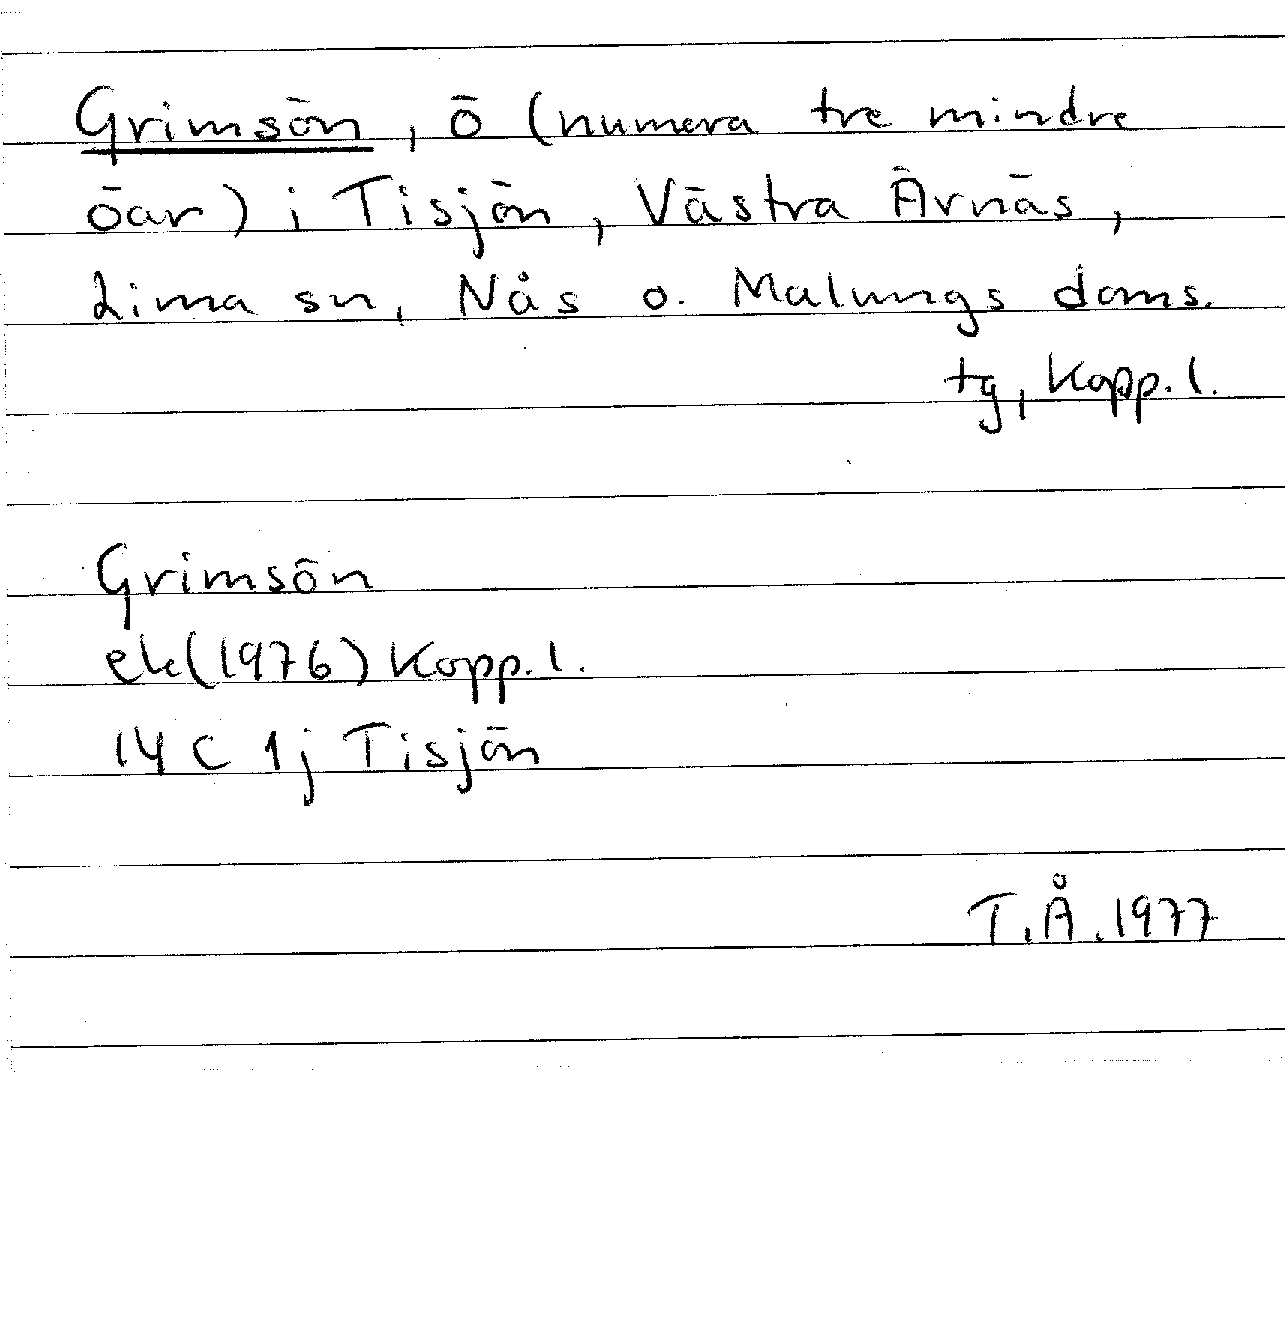 Grimsön, ö (numera tre mindre
öar) i Tisjön, Västra Ärnäs,
Lima sn, Nås o. Malungs doms.
tg, Kopp.l.
Grimsön
ek(1976) Kopp.l.
14 C 1j Tisjön
T.Å.1977